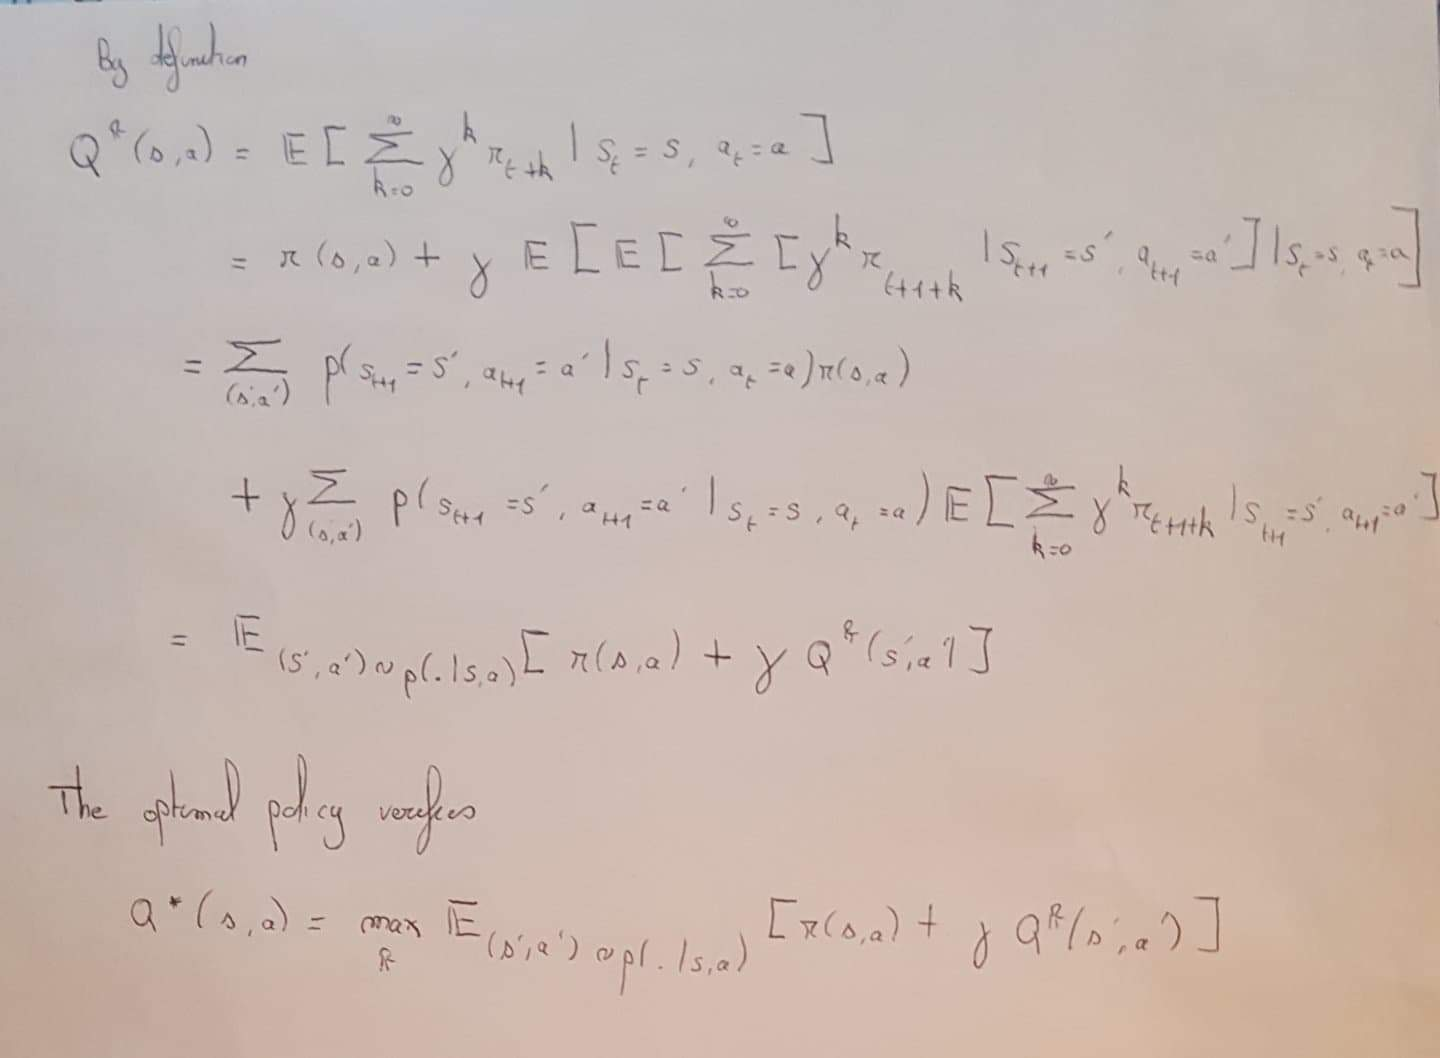 By definition
Q^π(s,a) = 𝔼[∑_{k=0}^{∞} γ^k r_{t+k} | s_t = s, a_t = a]
= r(s,a) + γ 𝔼[𝔼[∑_{k=0}^{∞} [γ^k r_{t+1+k} | s_{t+1} = s', a_{t+1} = a'] | s_t = s, a_t = a]
= ∑_{(s',a')} p(s_{t+1} = s', a_{t+1} = a' | s_t = s, a_t = a) r(s,a)
+ γ ∑_{(s',a')} p(s_{t+1} = s', a_{t+1} = a' | s_t = s, a_t = a) 𝔼[∑_{k=0}^{∞} γ^k r_{t+1+k} | s_{t+1} = s', a_{t+1} = a']
= 𝔼_{(s',a')∼p(.|s,a)} [r(s,a) + γ Q^π(s',a')]
The optimal policy verifies
Q*(s,a) = max_π 𝔼_{(s',a')∼p(.|s,a)} [r(s,a) + γ Q^π(s',a')]